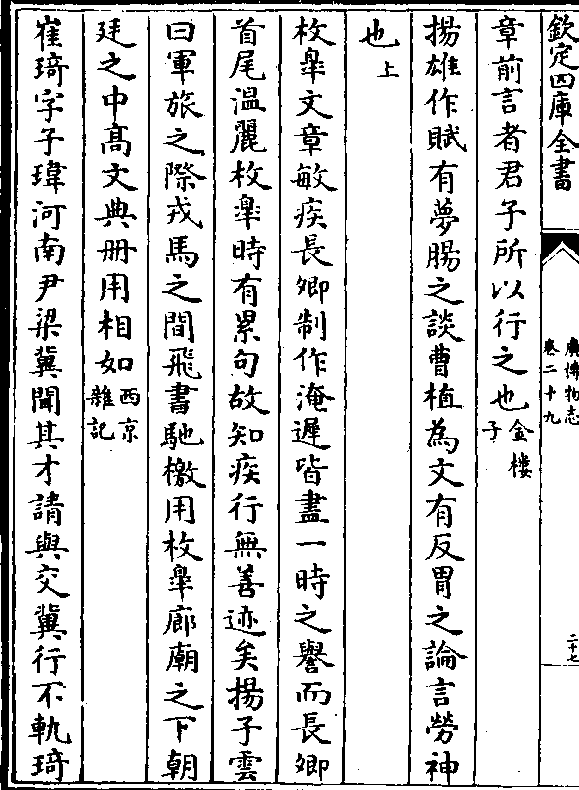 欽定四庫全書
廣博物志
卷二十九
二十七
章前言者君子所以行之也金樓子
揚雄作賦有夢腸之談曹植為文有反胃之論言勞神
也上
枚臯文章敏疾長卿制作淹遲皆盡一時之譽而長卿
首尾温麗枚臯時有累句故知疾行無善迹矣揚子雲
曰軍旅之際戎馬之間飛書馳檄用枚臯廊廟之下朝
廷之中高文典册用相如西京雜記
崔琦字子瑋河南尹梁冀聞其才請與交冀行不軌琦